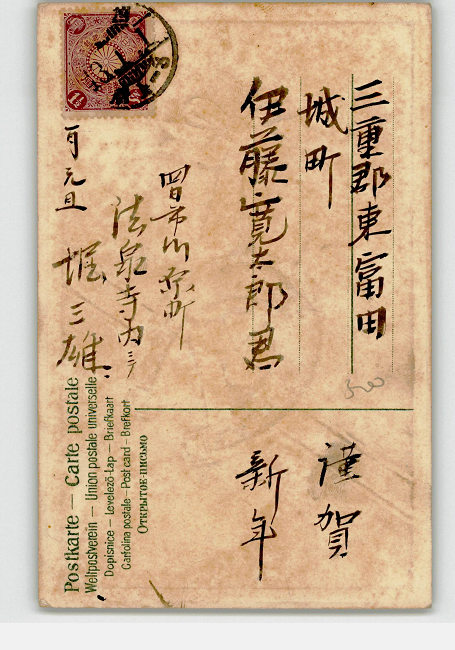 三重郡東富田
城町
伊藤寛太郎君
四日市川原町
法泉寺内ニテ
一月元旦
堀三雄
謹賀
新年
Postkarte — Carte postale
Weltpostverein — Union postale universelle
Dopisnice — Levelező-Lap — Briefkaart
Cartolina postale — Post card — Brefkort
Открытое письмо
500